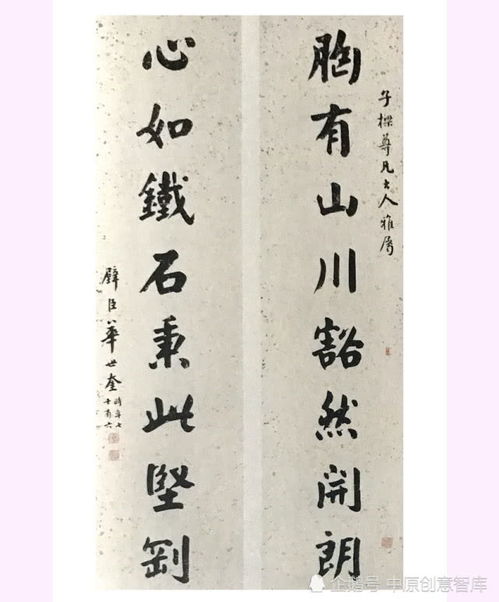 子樑尊凡大人雅屬
胸有山川豁然開朗
心如鐵石秉此堅剛
壁臣華世奎
時年七
十有六
企鹅号 中原创意智库